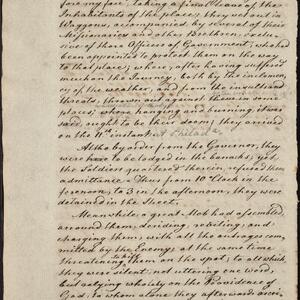 fore my face; taking a final leave of the
Inhabitants of the place; they set out in
Waggons, accompanied by several of their
Missionaries and other Brethren, exclu-
sive of those Officers of Government, who had
been appointed to protect them on the way
to that place; where, after having suffered
much on the Journey, both by the inclemen-
cy of the weather, and from the insults and
threats, thrown out against them in some
places; where hanging and burning, it was
said, ought to be their doom; they arrived
on the 11th instant at Philada.
Altho' by order from the Governor, they
were to be lodged in the barracks; yet,
the Soldiers quartered therein, refused them
admittance. Thus from 10 Clock in the
forenoon, to 3 in the afternoon, they were
detained in the Street.
Meanwhile a great Mob had assembled
around them, deriding, reviling, and
charging them with all the outrages com-
mitted by the Enemy; at the same time
threatening them on the spot; to all which
they were silent not uttering one word,
but relying wholely on the Providence of
God; to whom alone they afterwards ascri-